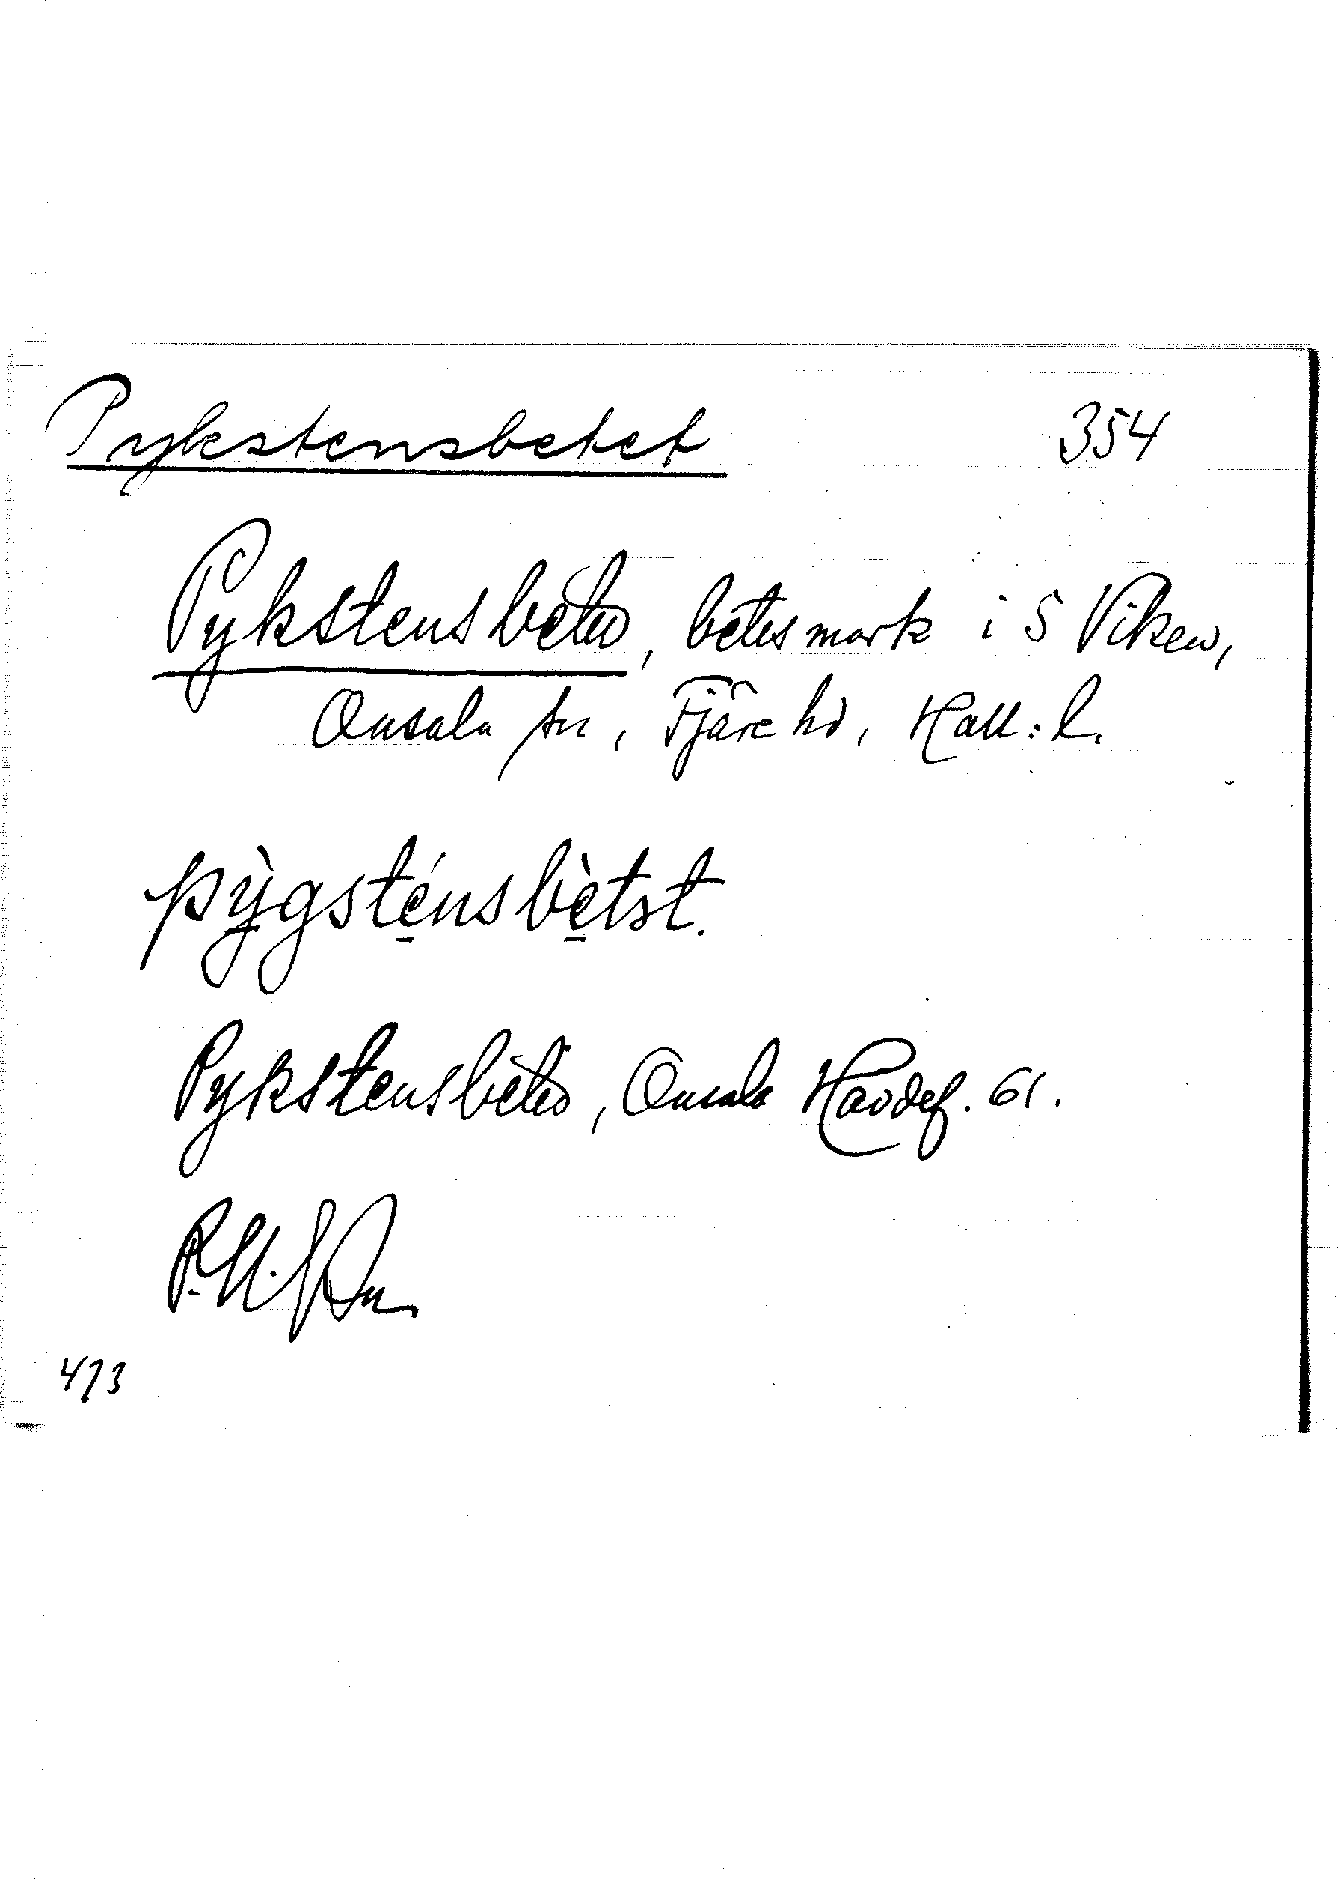 Pykstensbetet 354
Pykstensbetet, betesmark i S Viken,
Onsala sn, Fjäre hd, Hall:l.
pỳgsténsbètət.
Pykstensbetet, Onsala Havdef. 61.
473